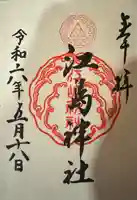 奉拝
江島神社
令和六年五月十八日